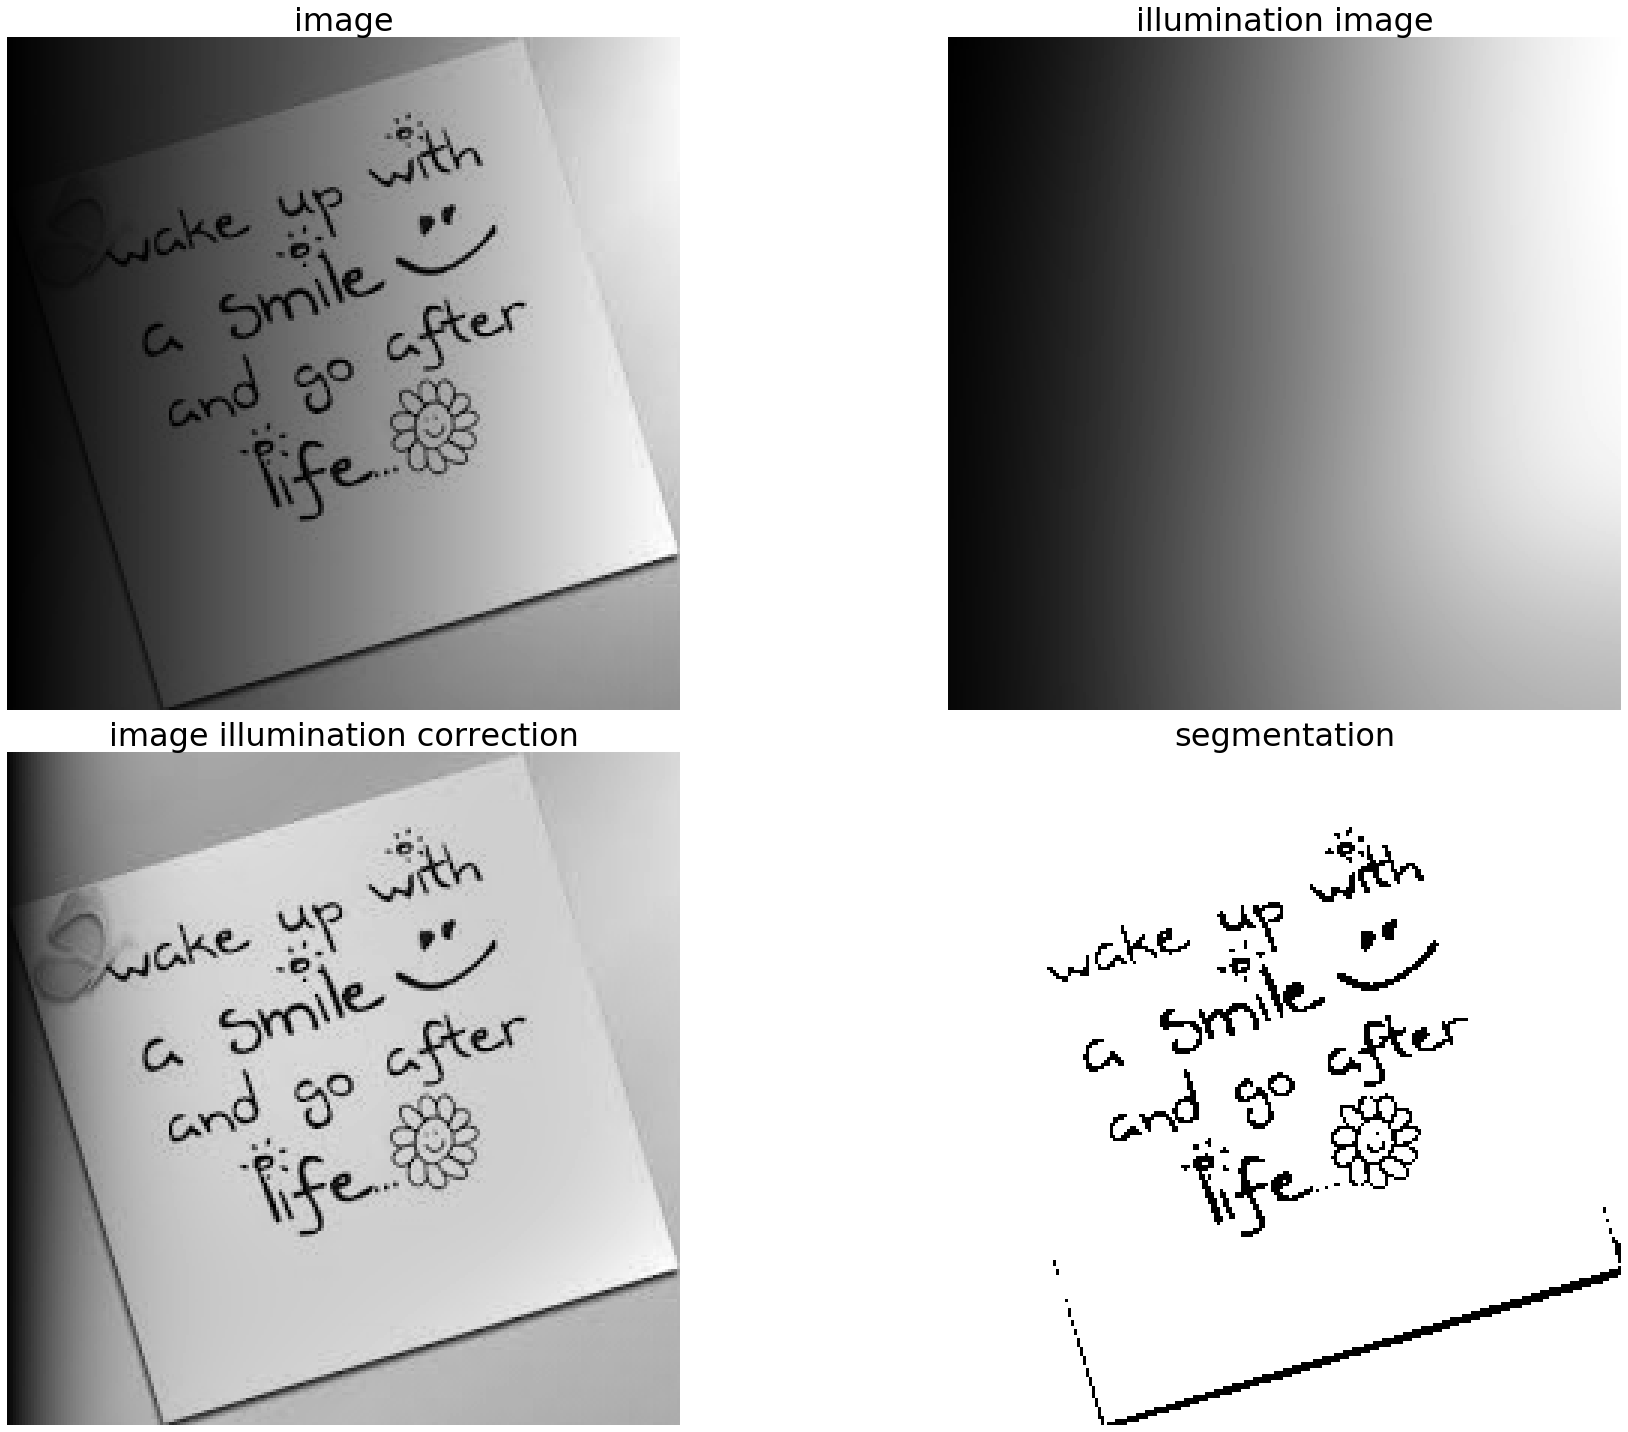 image
wake up with
a smile
and go after
life...
illumination image
image illumination correction
wake up with
a smile
and go after
life...
segmentation
wake up with
a smile
and go after
life...